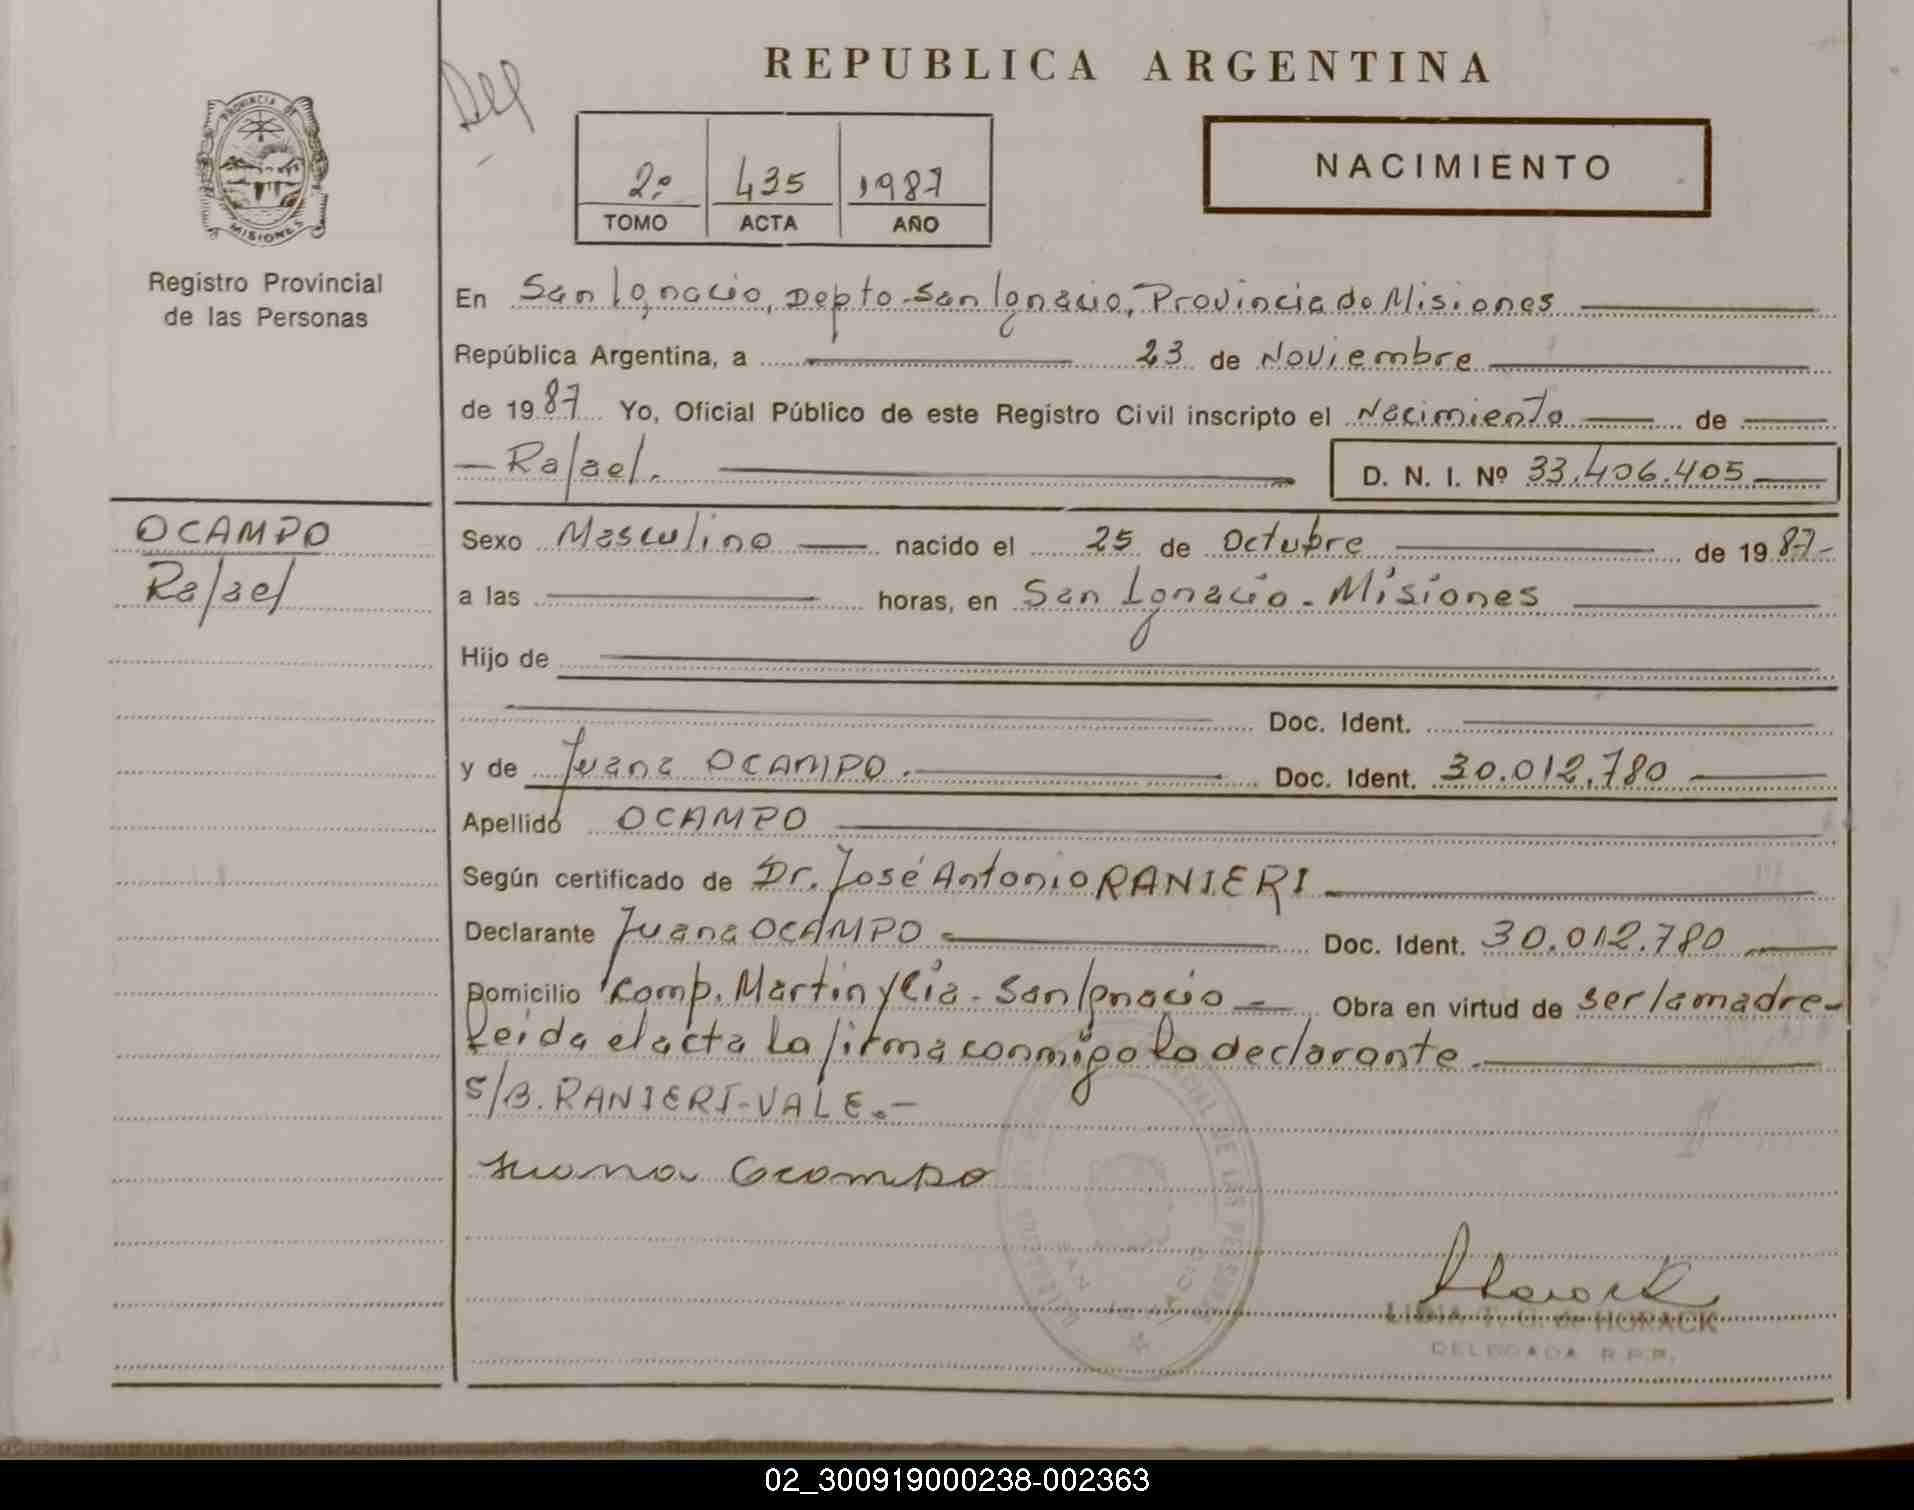 REPUBLICA ARGENTINA
PROVINCIA DE
MISIONES
Registro Provincial
de las Personas
2º 435 1987
TOMO ACTA AÑO
NACIMIENTO
En San Ignacio, Depto. San Ignacio, Provincia de Misiones
República Argentina, a 23 de Noviembre
de 1987 Yo, Oficial Público de este Registro Civil inscripto el Nacimiento de
Rafael. D. N. I. Nº 33.406.405
OCAMPO
Rafael
Sexo Masculino nacido el 25 de Octubre de 1987-
a las horas, en San Ignacio - Misiones
Hijo de
Doc. Ident.
y de Juana OCAMPO. Doc. Ident. 30.012.780
Apellido OCAMPO
Según certificado de Dr. José Antonio RANIERI
Declarante Juana OCAMPO Doc. Ident. 30.012.780
Domicilio Comp. Martin y Cia - San Ignacio Obra en virtud de ser la madre-
Leida el acta la firma conmigo la declarante.
S/B. RANIERI-VALE.-
Juana Ocampo
Horack
LIDIA T. G. de HORACK
DELEGADA R.P.P.
02_300919000238-002363